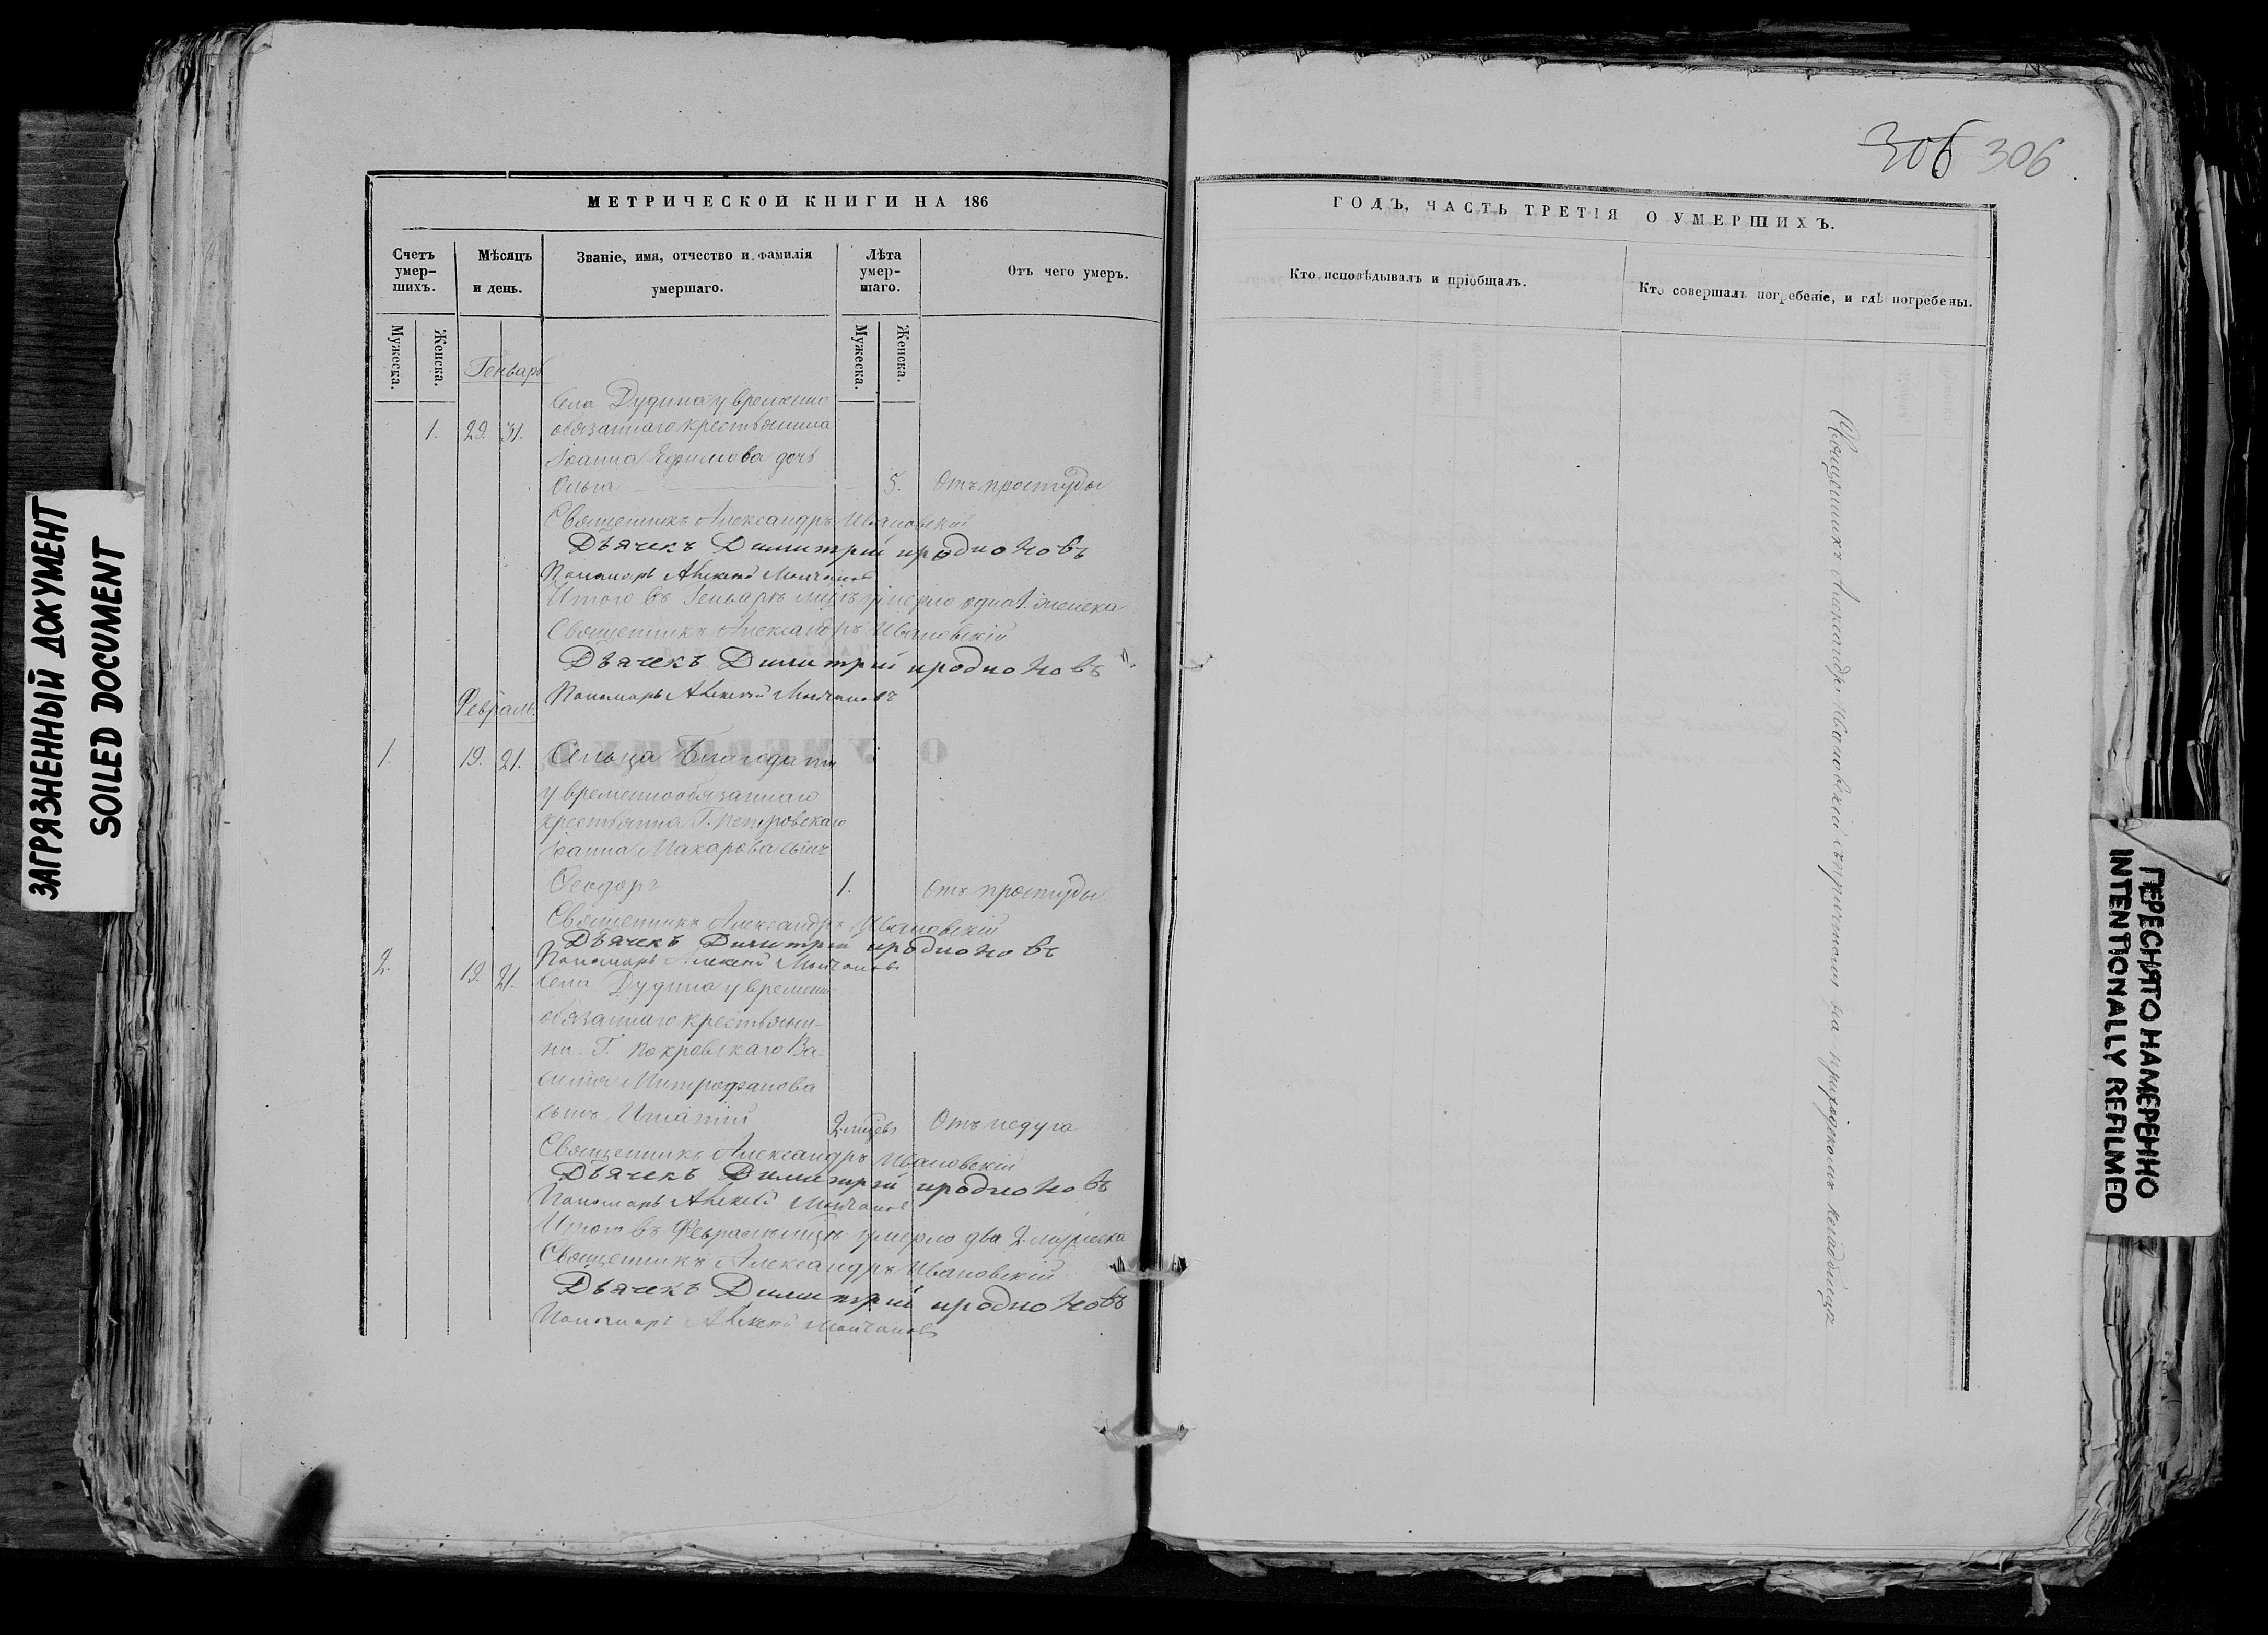 ЗАГРЯЗНЕННЫЙ ДОКУМЕНТ
SOILED DOCUMENT
МЕТРИЧЕСКОЙ КНИГИ НА 186
Счетъ умер-шихъ.
Мѣсяцъ и день.
Званіе, имя, отчество и фамилія умершаго.
Лѣта умер-шаго.
Отъ чего умеръ.
Мужеска.
Женска.
Мужеска.
Женска.
Генварь
Села Дудина у временно
1. 29. 31. обязаннаго крестьянина
Іоанна Ефимова дочь
Ольга 5. Отъ простуды
Священникъ Александръ Ивановскій
Дьячекъ Димитрій
Пономарь Алексей Молчановъ
Итого въ Генварѣ мцѣ умерло одна 1. женска
Священникъ Александръ Ивановскій
Дьячекъ Димитрій
Пономарь Алексей Молчановъ
Февраль.
1. 19. 21. Сельца Благодати
у временнообязаннаго
крестьянина Г. Петровскаго
Іоанна Макарова сынъ
Ѳеодоръ 1. Отъ простуды
Священникъ Александръ Ивановскій
Дьячекъ Димитрій
Пономарь Алексей Молчановъ
2. 19. 21. Села Дудина у временно
обязаннаго крестьяни-
на Г. Покровскаго Ва-
силія Митрофанова
сынъ Игнатій 2. мцевъ Отъ недуга
Священникъ Александръ Ивановскій
Дьячекъ Димитрій
Пономарь Алексей Молчановъ
Итого въ Февралѣ мцѣ умерло два 2. мужеска
Священникъ Александръ Ивановскій
Дьячекъ Димитрій
Пономарь Алексей Молчановъ
306 306
ГОДЪ, ЧАСТЬ ТРЕТІЯ О УМЕРШИХЪ.
Кто исповѣдывалъ и пріобщалъ.
Кто совершалъ погребеніе, и гдѣ погребены.
Священникъ Александръ Ивановскій съ причтомъ на приходскомъ кладбищѣ
ПЕРЕСНЯТО НАМЕРЕННО
INTENTIONALLY REFILMED